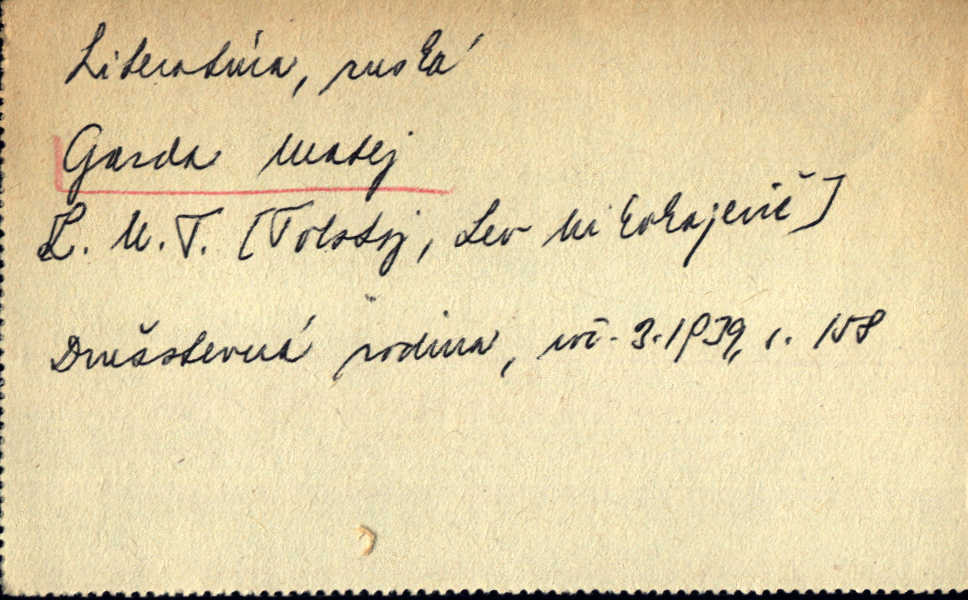 Literatúra, ruská
Garda Matej
L. M. T. [Tolstoj, Lev Nikolajevič]
Družstevná rodina, roč. 3. 1939, s. 158